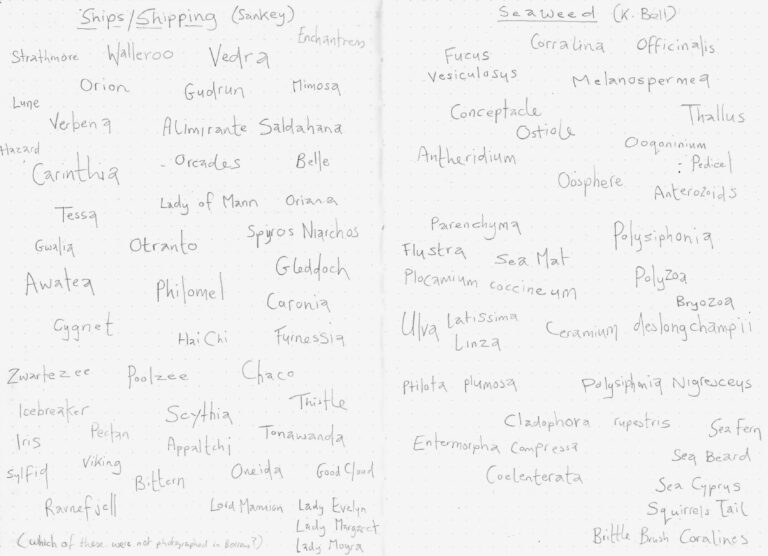 Ships/Shipping (Sankey)
Enchantress
Strathmore Walleroo Vedra
Orion Gudrun Mimosa
Lune
Verbena Almirante Saldahana
Hazard
Carinthia Orcades Belle
Lady of Mann Oriana
Tessa
Gwalia Otranto Spyros Niarchos
Gleddoch
Awatea Philomel Caronia
Cygnet Hai Chi Furnessia
Zwartezee Poolzee Chaco
Icebreaker Scythia Thistle
Iris Pectan Appaltchj Tonawanda
Sylfid Viking Bittern Oneida Good Cloud
Ravnefjell Lord Mamion Lady Evelyn
Lady Margaret
(which of these were not photographed in Barrow?) Lady Moyra
Seaweed (K. Bell)
Fucus Corralina Officinalis
Vesiculosus Melanospermea
Conceptacle Thallus
Ostiole
Antheridium Oogoninium
: Pedicel
Oosphere Anterozoids
Parenchyma Polysiphonia
Flustra Sea Mat
Plocamium coccineum Polyzoa
Bryozoa
Ulva Latissima Ceramium deslongchampii
Linza
Ptilota plumosa Polysiphonia Nigresceys
Cladophora rupestris Sea Fern
Entermorpha Compressa Sea Beard
Coelenterata Sea Cyprus
Squirrels Tail
Brittle Brush Coralines